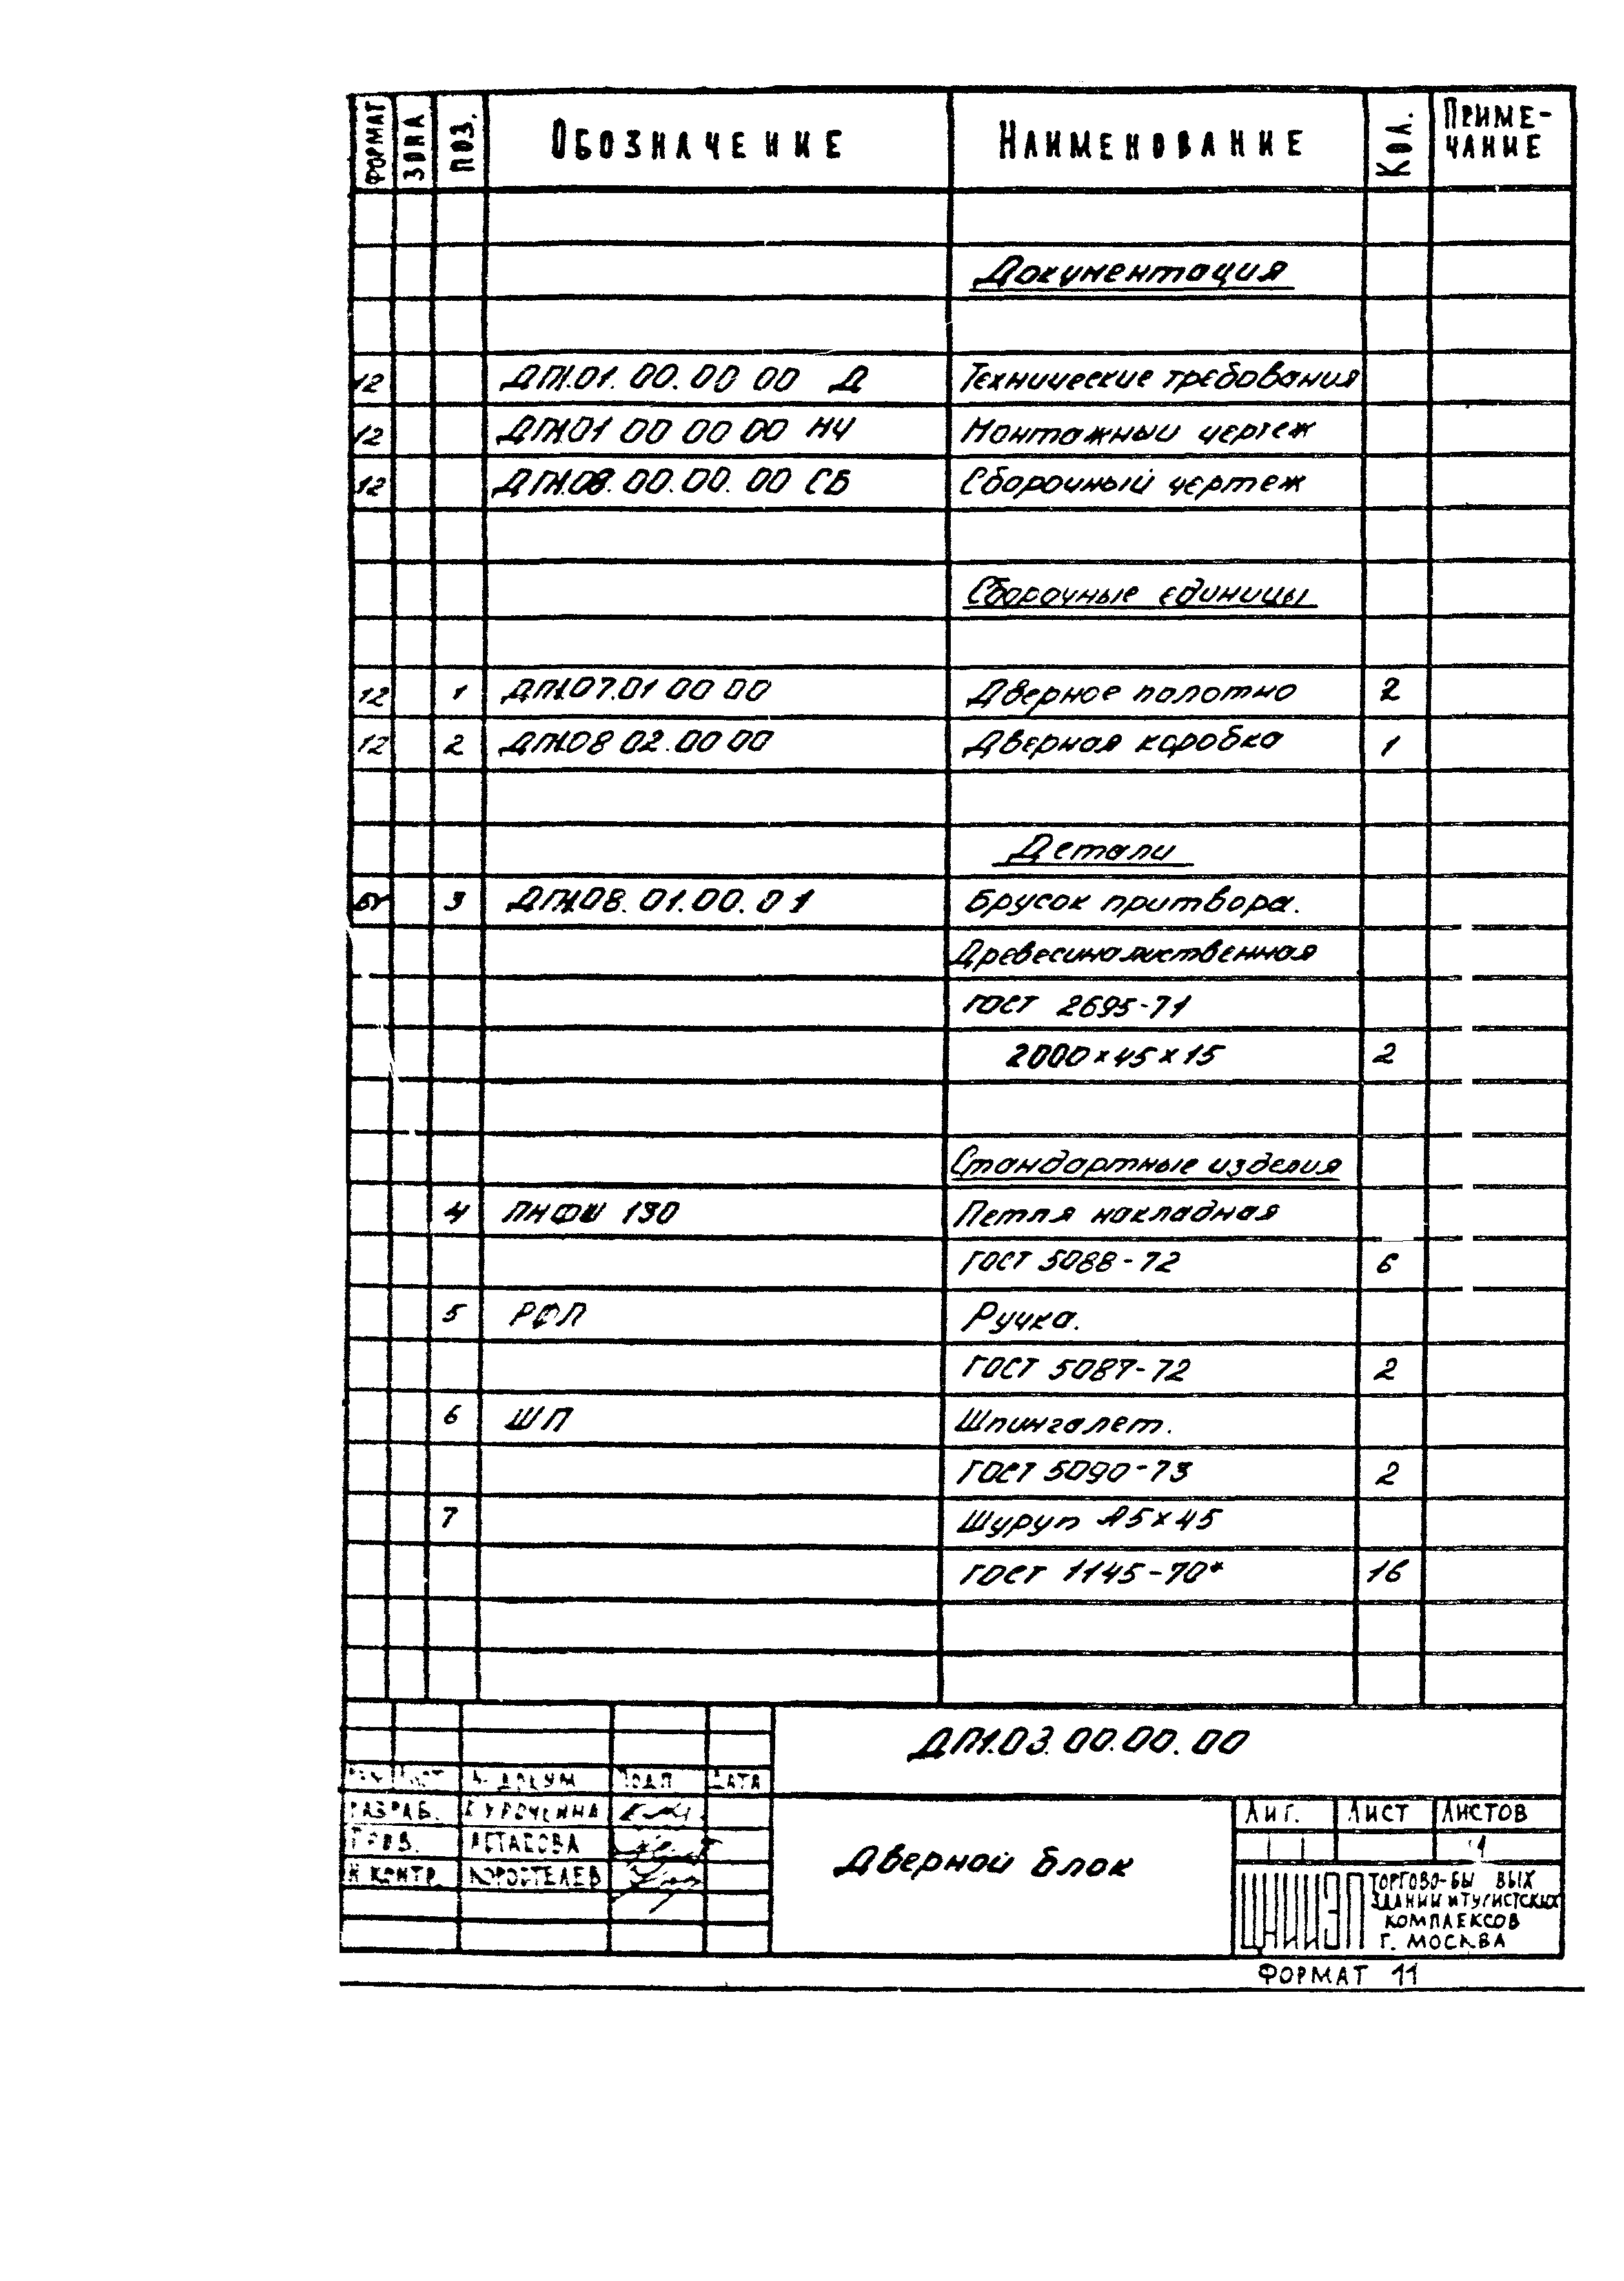 ФОРМАТ ЗОНА ПОЗ. ОБОЗНАЧЕНИЕ НАИМЕНОВАНИЕ КОЛ. ПРИМЕ-
ЧАНИЕ
Документация
12 ДП1.01.00.00 00 Д Технические требования
12 ДП1.01 00 00 00 МЧ Монтажный чертеж
12 ДП1.08.00.00.00 СБ Сборочный чертеж
Сборочные единицы
12 1 ДП1.07.01 00 00 Дверное полотно 2
12 2 ДП1.08 02.00 00 Дверная коробка 1
Детали
БЧ 3 ДП1.08.01.00.01 Брусок притвора.
Древесина лиственная
ГОСТ 2695-71
2000×45×15 2
Стандартные изделия
4 ПНФШ 130 Петля накладная
ГОСТ 5088-72 6
5 РФП Ручка.
ГОСТ 5087-72 2
6 ШП Шпингалет.
ГОСТ 5090-73 2
7 Шуруп А5×45
ГОСТ 1145-70* 16
ДП1.03.00.00.00
ЛИСТ № ДОКУМ ПОДП ДАТА
РАЗРАБ. КУРОЧКИНА
ПРОВ. АСТАХОВА
Н КОНТР. КОРОСТЕЛЕВ
Дверной блок
ЛИТ. ЛИСТ ЛИСТОВ
1
ЦНИИЭП ТОРГОВО-БЫ ВЫХ
ЗДАНИЙ И ТУРИСТСКИХ
КОМПЛЕКСОВ
Г. МОСКВА
ФОРМАТ 11